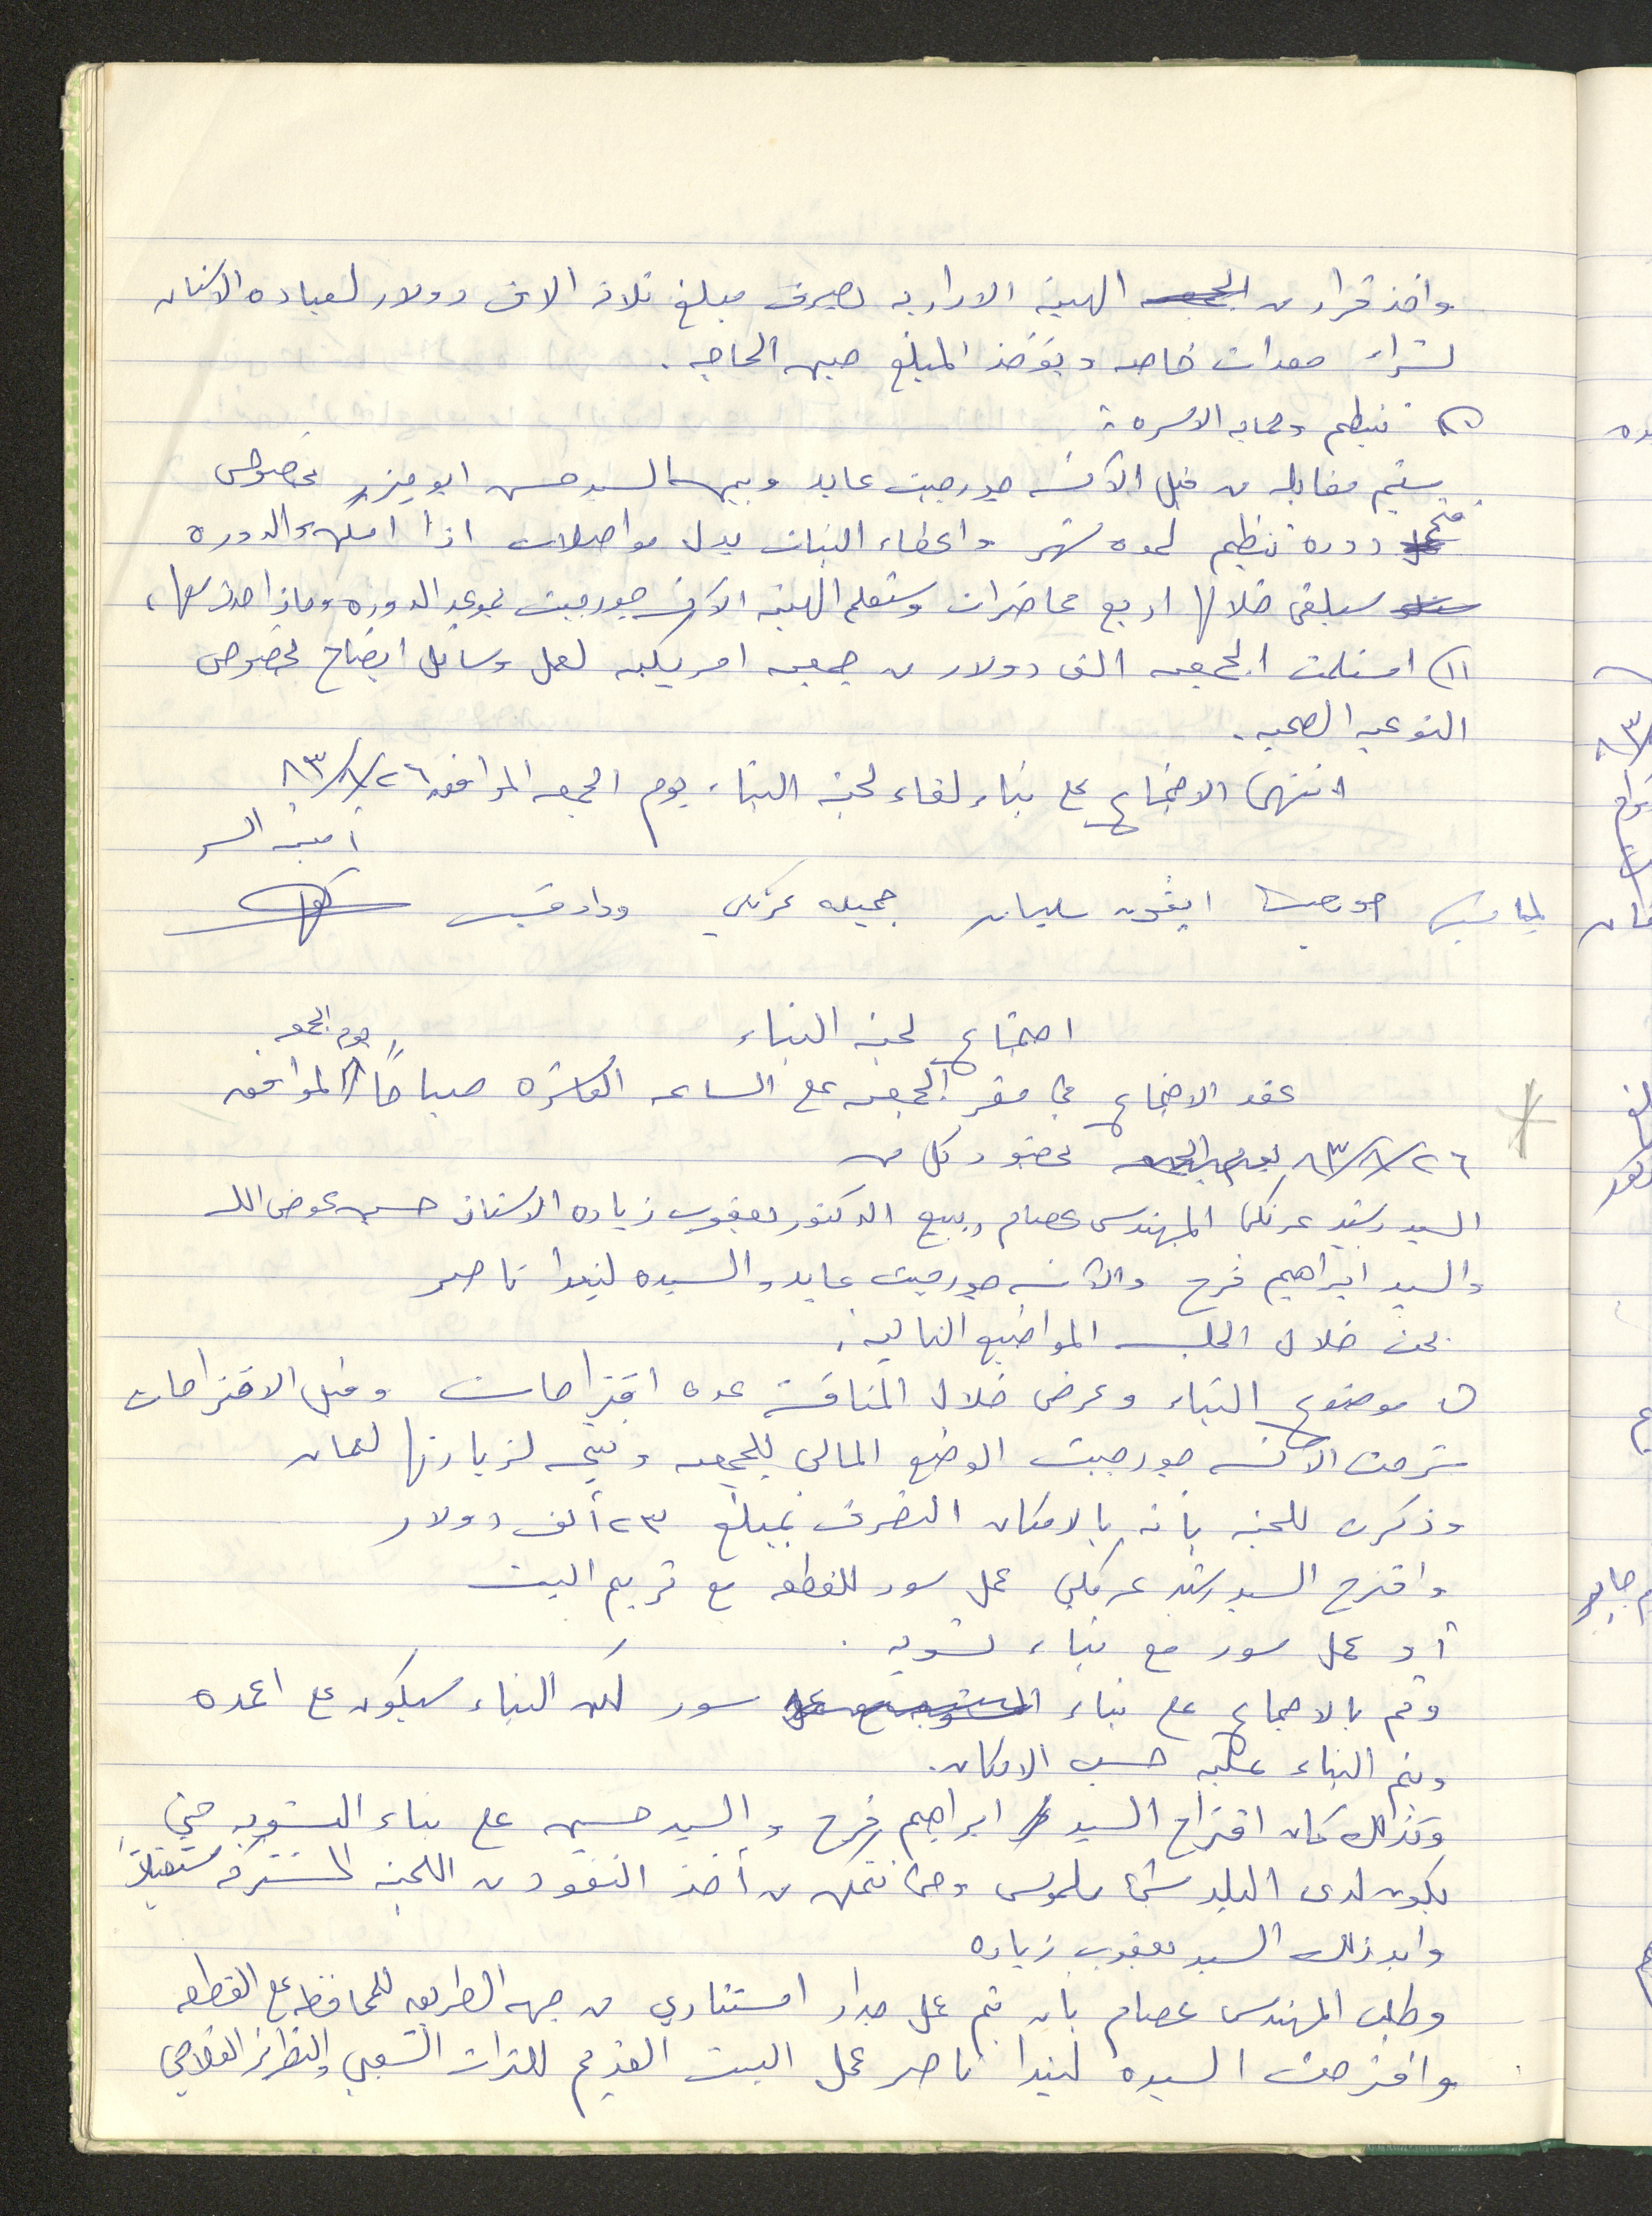 واخذ قرار من الجمعيه الهيئه الاداريه بصرف مبلغ ثلاثه الاف دولار لعياده الاسنان
لشراء معدات خاصه ويؤخذ المبلغ حسب الحاجه .
تنظيم وحمايه الاسره :
ستتم مقابله من قبل الآنسه جورجيت عابد وبين السيد حسن ابو ميزر بخصوص
فتح عمل دوره تنظيم لمده شهر واعطاء البنات بدل مواصلات اذا امكن والدوره
سيلقى خلالها اربع محاضرات وستعلم الهيئه الآنسه جورجيت بموعد الدوره وماذا
١١) استلمت الجمعيه الف دولار من جمعيه امريكيه لعمل وسائل ايضاح بخصوص
التوعيه الصحيه .
انتهى الاجتماع على بناء لقاء لجنه البناء يوم الجمعه الموافق ٨٣/٨/٢٦
امينه السر
جورجيت ايفون سليمان جميله عرنكي وداد قسيس
اجتماع لجنه البناء
يوم الجمعه
عقد الاجتماع في مقر الجمعيه على الساعه العاشره صباحاً الموافق
٨٣/٨/٢٦ يوم الجمعه بحضور كل من
السيد رشيد عرنكي المهندس عصام ربيع الدكتور يعقوب زياده الاستاذ حسين عوض الله
والسيد ابراهيم فرح والآنسه جورجيت عابد والسيده ليندا ناصر
بحث خلال الجلسه المواضيع التاليه :
١) موضوع البناء وعرض خلال المناقشه عده اقتراحات وقبل الاقتراحات
شرحت الآنسه جورجيت الوضع المالي للجمعيه ونتيجه لزيارتها لعمان
وذكرت للجنه بأنه بالامكان التصرف بمبلغ ٢٣ ألف دولار
واقترح السيد رشيد عرنكي عمل سور للقطعه مع ترميم البيت
أو عمل سور مع بناء تسويه .
وتم بالاجماع على بناء التسويه مع عمل سور لكن البناء سيكون على اعمده
ويتم البناء عليه حسب الامكان .
وكذلك كان اقتراح السيد ابراهيم فرح والسيد حسين على بناء التسويه حتى
يكون لدى البلد شئ ملموس وحتى نتمكن من أخذ النقود من اللجنه المشتركه مستقبلاً
وايد ذلك السيد يعقوب زياده
وطلب المهندس عصام بان يتم عمل جدار استنادي من جهه الطريق للمحافظه على القطعه
واقترحت السيده ليندا ناصر عمل البيت القديم للتراث الشعبي والتطريز الفلاحي